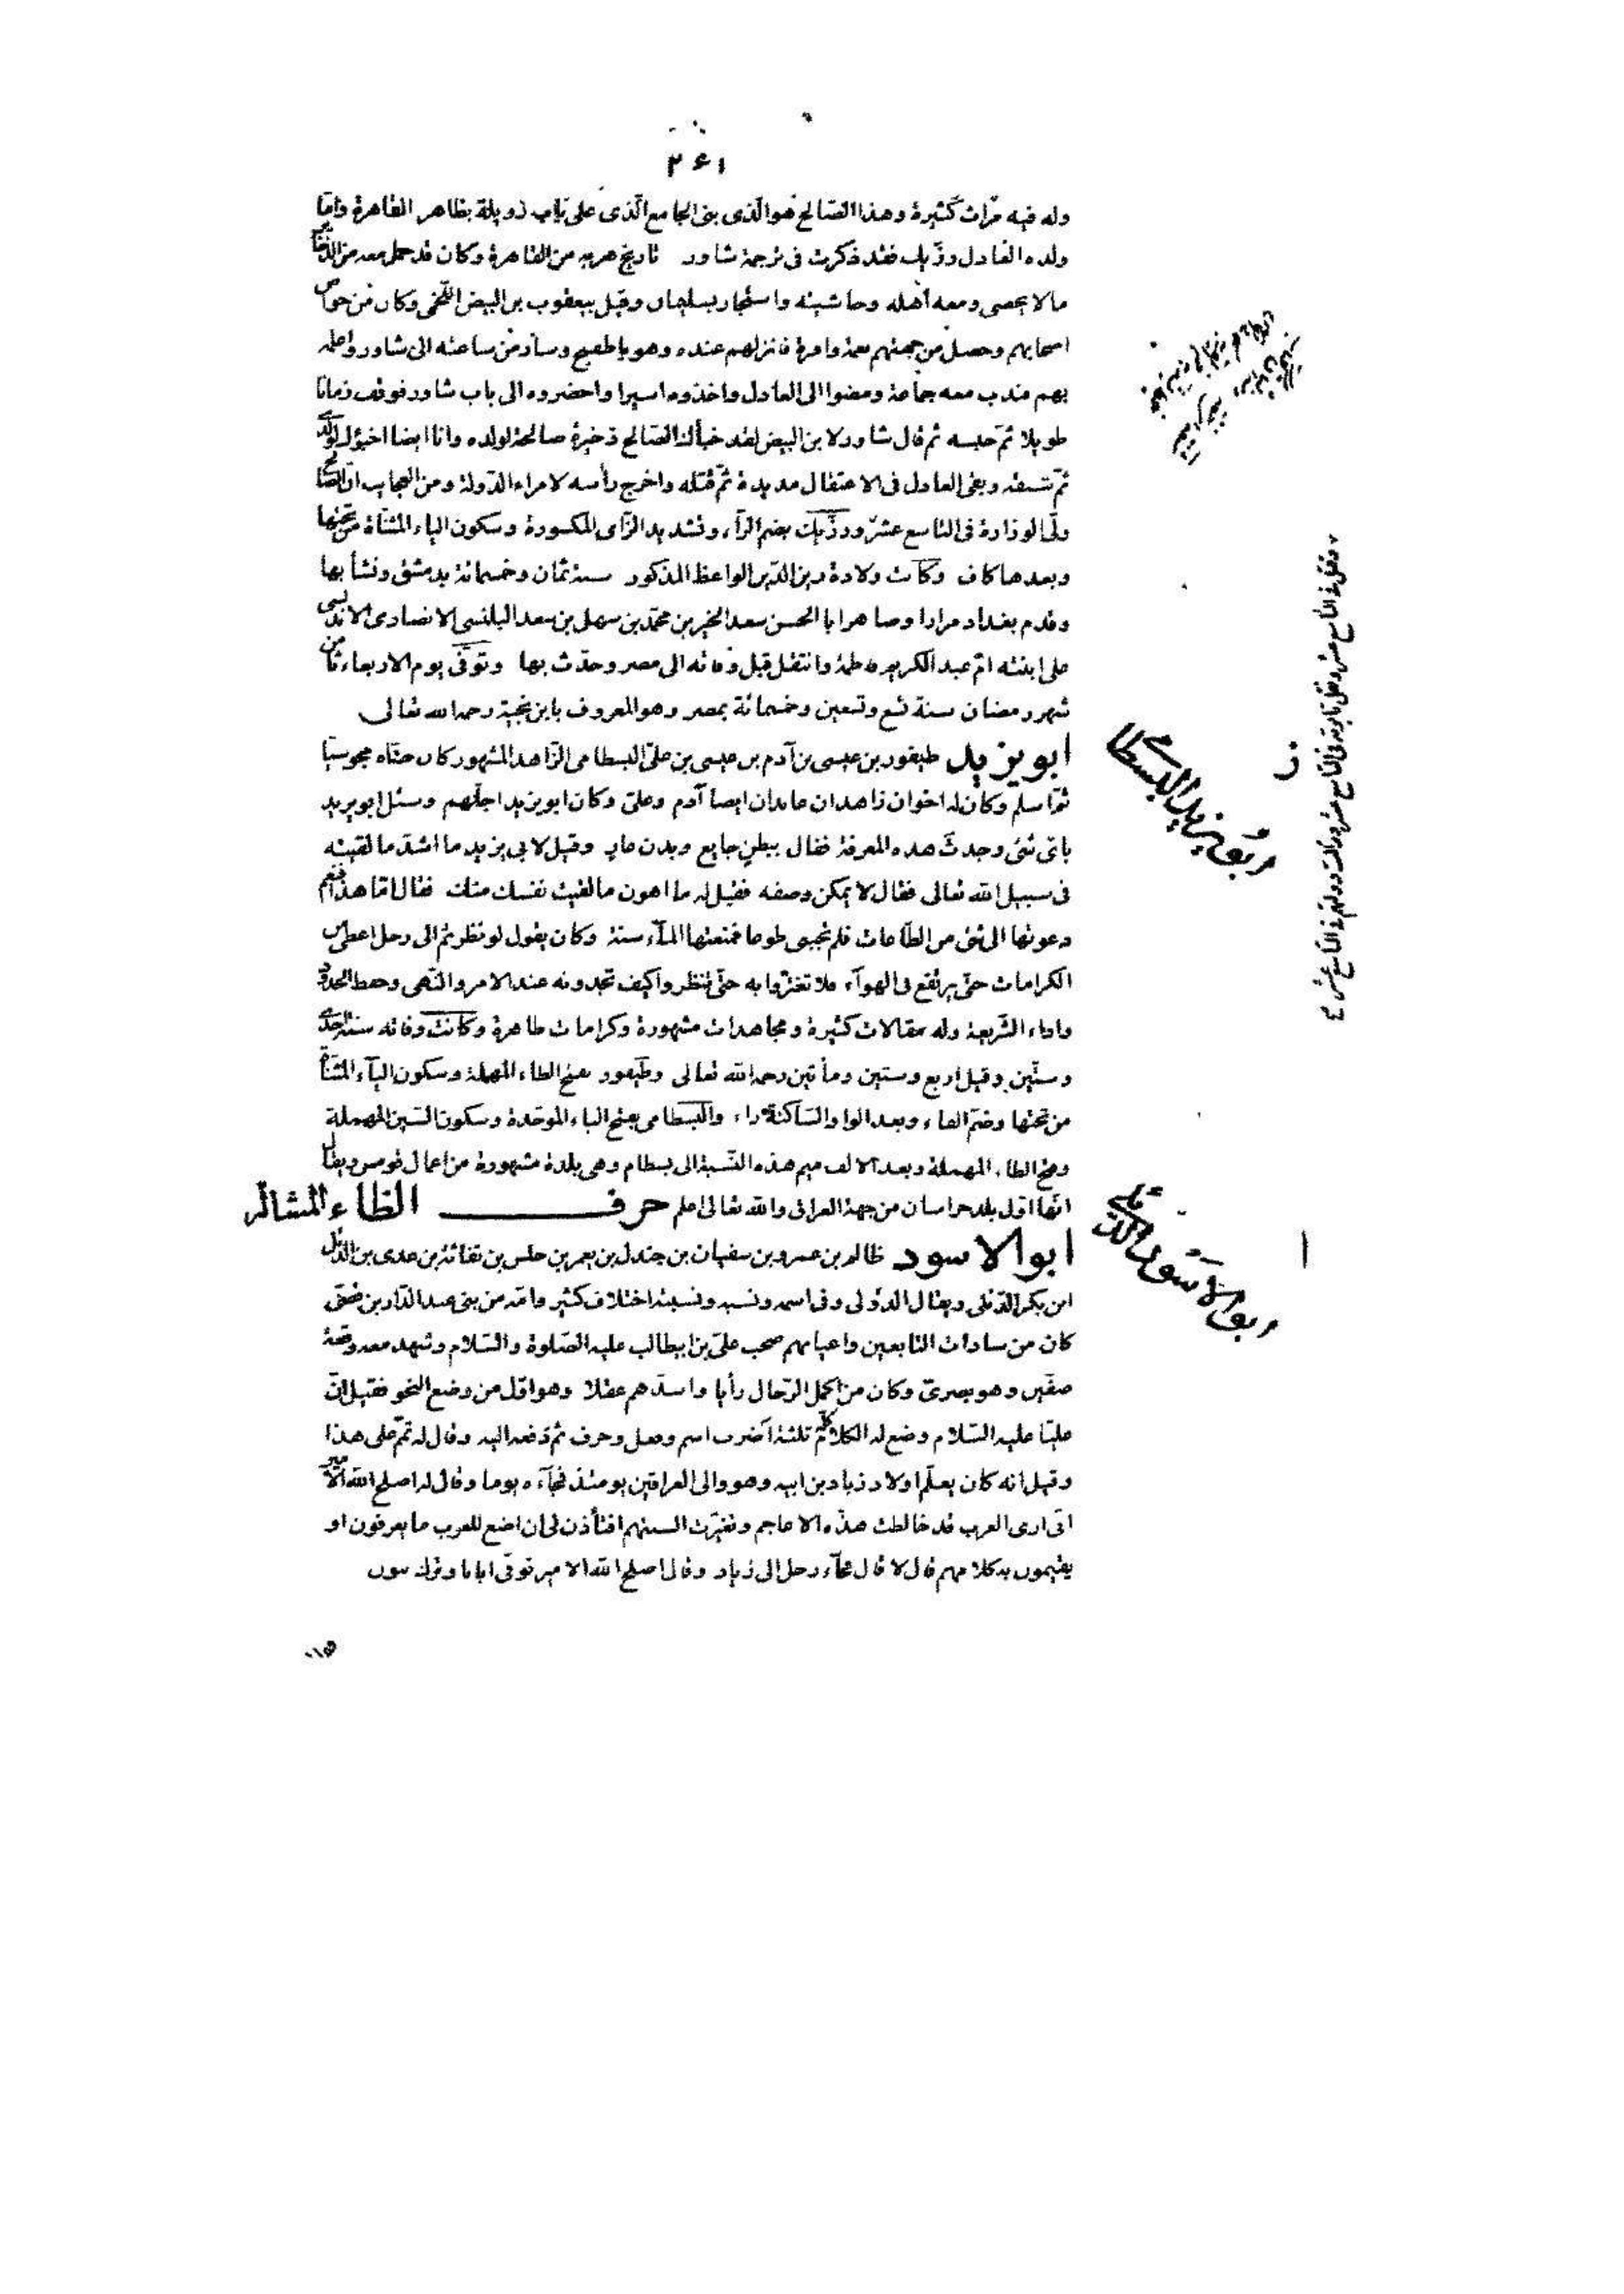 ٢٤١
وله فيه مراث كثيرة وهذا الصّالح هو الّذى بنى الجامع الّذى على باب زويلة بظاهر القاهرة وامّا
ولده العادل رزّيك فقد ذكرت فى ترجمة شاور تاريخ هربه من القاهرة وكان قد حمل معه من الذخائر
ما لا يحصى ومعه اهله وحاشيته واستجار بسليمان وقيل بيعقوب بن البيض اللّخمى وكان من خواص
اصحابهم وحصل من جهتهم نعمة وافرة فانزلهم عنده وهو باطفيح وسار من ساعته الى شاور واعلمه
بهم فندب معه جماعة ومضوا الى العادل واخذوه اسيرا واحضروه الى باب شاور فوقف زمانا
طويلا ثمّ حبسه ثم قال شاور لابن البيض لقد خبأك الصّالح ذخيرة صالحة لولده وانا ايضا اخبؤك لولدى
ثمّ شنقه وبقى العادل فى الاعتقال مديدة ثمّ قتله واخرج رأسه لامراء الدّولة ومن العجايب انّ الصّالح
ولّى الوزارة فى التاسع عشر ورزّيك بضم الرّاء وتشديد الزّاى المكسورة وسكون الياء المثنّاة من تحتها
وبعدها كاف وكانت ولادة زين الدّين الواعظ المذكور سنة ثمان وخمسمائة بدمشق ونشأ بها
وقدم بغداد مرارا وصاهر ابا الحسن سعد الخير بن محمّد بن سهل بن سعد البلنسى الانصارى الاندلسى
على ابنته امّ عبد الكريم فاطمة وانتقل قبل وفاته الى مصر وحدّث بها وتوفّى يوم الاربعاء ثامن
شهر رمضان سنة تسع وتسعين وخمسمائة بمصر وهو المعروف بابن نجية رحمه الله تعالى
ابو يزيد طيفور بن عيسى بن آدم بن عيسى بن علىّ البسطامى الزّاهد المشهور كان جدّه مجوسيّا
ثمّ اسلم وكان له اخوان زاهدان عابدان ايضا آدم وعلىّ وكان ابو يزيد اجلّهم وسئل ابو يزيد
باىّ شئ وجدت هذه المعرفة فقال ببطن جايع وبدن عار وقيل لابى يزيد ما اشدّ ما لقيته
فى سبيل الله تعالى فقال لا يمكن وصفه فقيل له ما اهون ما لقيت نفسك منك فقال امّا هذا فنعم
دعوتها الى شئ من الطّاعات فلم تجبنى طوعا فمنعتها الماء سنة وكان يقول لو نظرتم الى رجل اعطى من
الكرامات حتّى يرتفع فى الهواء فلا تغترّوا به حتّى تنظروا كيف تجدونه عند الامر والنّهى وحفظ الحدود
واداء الشّريعة وله مقالات كثيرة ومجاهدات مشهورة وكرامات ظاهرة وكانت وفاته سنة احدى
وستّين وقيل اربع وستين ومأتين رحمه الله تعالى وطيفور بفتح الطاء المهملة وسكون الياء المثنّاة
من تحتها وضمّ الفاء وبعد الواو السّاكنة راء والبسطامى بفتح الباء الموحّدة وسكون السّين المهملة
وفتح الطاء المهملة وبعد الالف ميم هذه النّسبة الى بسطام وهى بلدة مشهورة من اعمال قومس ويقال
انّها اوّل بلد خراسان من جهة العراق والله تعالى اعلم حرف الظاء المشالة
ابو الاسود ظالم بن عمرو بن سفيان بن جندل بن يعمر بن حلس بن نفاثة بن عدى بن الدّئل
ابن بكر الدّئلى ويقال الدؤلى وفى اسمه ونسبه ونسبته اختلاف كثير وامّه من بنى عبد الدّار بن قصىّ
كان من سادات التابعين واعيانهم صحب علىّ بن ابيطالب عليه الصّلوة والسّلام وشهد معه وقعة
صفّين وهو بصرىّ وكان من اكمل الرّجال رأيا واسدّهم عقلا وهو اوّل من وضع النحو فقيل انّ
عليّا عليه السّلام وضع له الكلام كله ثلثة اضرب اسم وفعل وحرف ثم دفعه اليه وقال له تمّم على هذا
وقيل انه كان يعلّم اولاد زياد بن ابيه وهو والى العراقين يومئذ فجاءه يوما وقال له اصلح الله الامير
انّى ارى العرب قد خالطت هذه الاعاجم وتغيّرت السنتهم افتأذن لى ان اضع للعرب ما يعرفون او
يقيمون به كلامهم قال لا قال فجاء رجل الى زياد وقال اصلح الله الامير توفّى ابانا وترك بنون
ز
ابو يزيد البسطامى
ا
ابو الاسود الدئلى